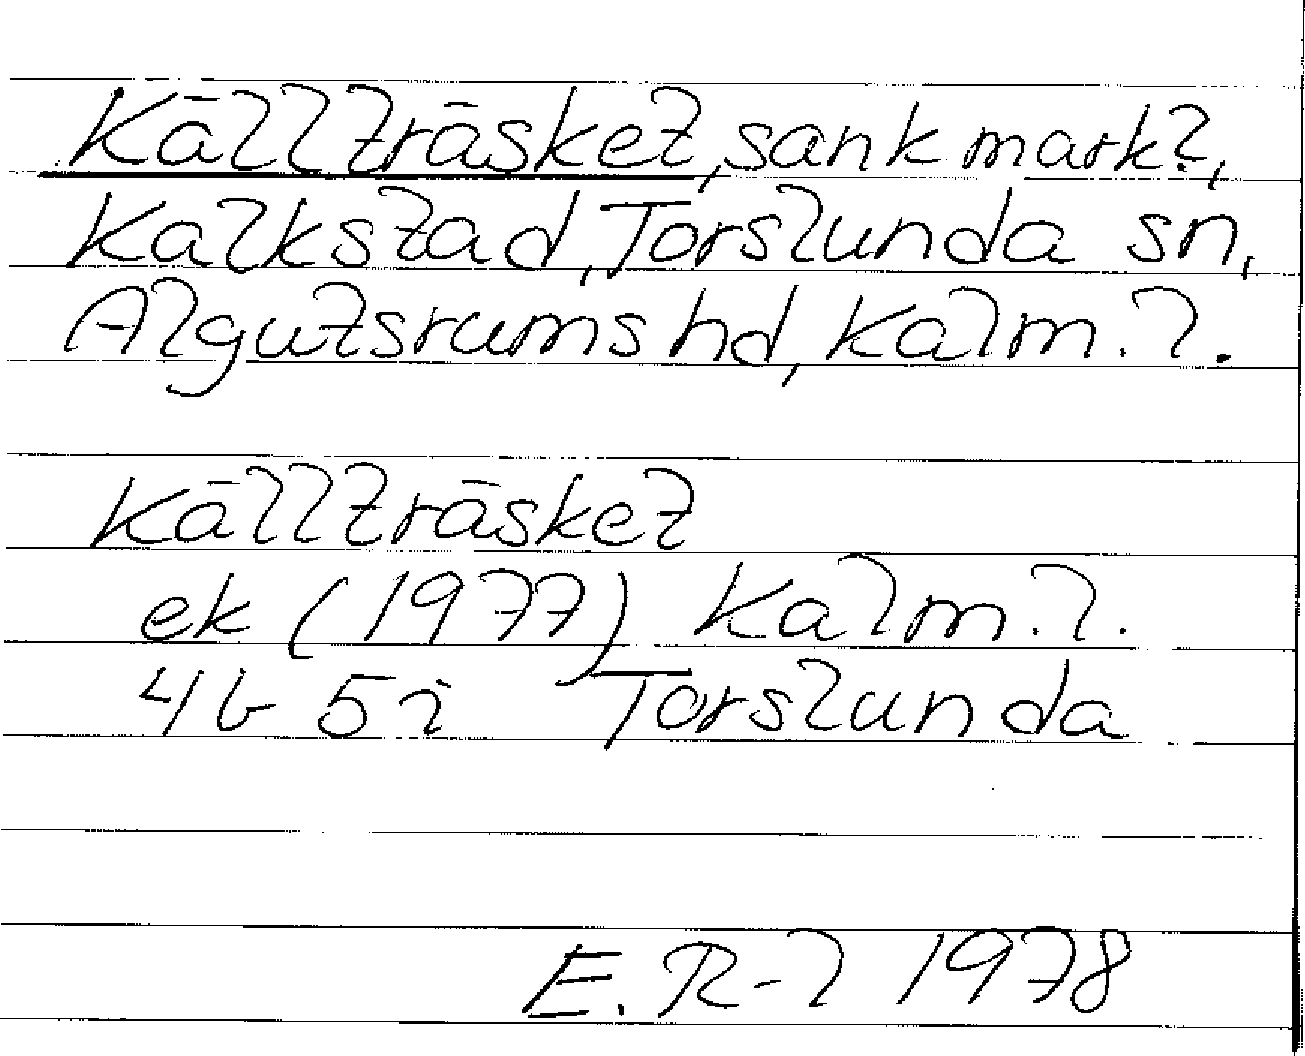 Källträsket, sank mark?,
Kalkstad, Torslunda sn,
Algutsrums hd, Kalm. l.
Källträsket
ek (1977) Kalm. l.
4G 5i Torslunda
E. R-l 1978